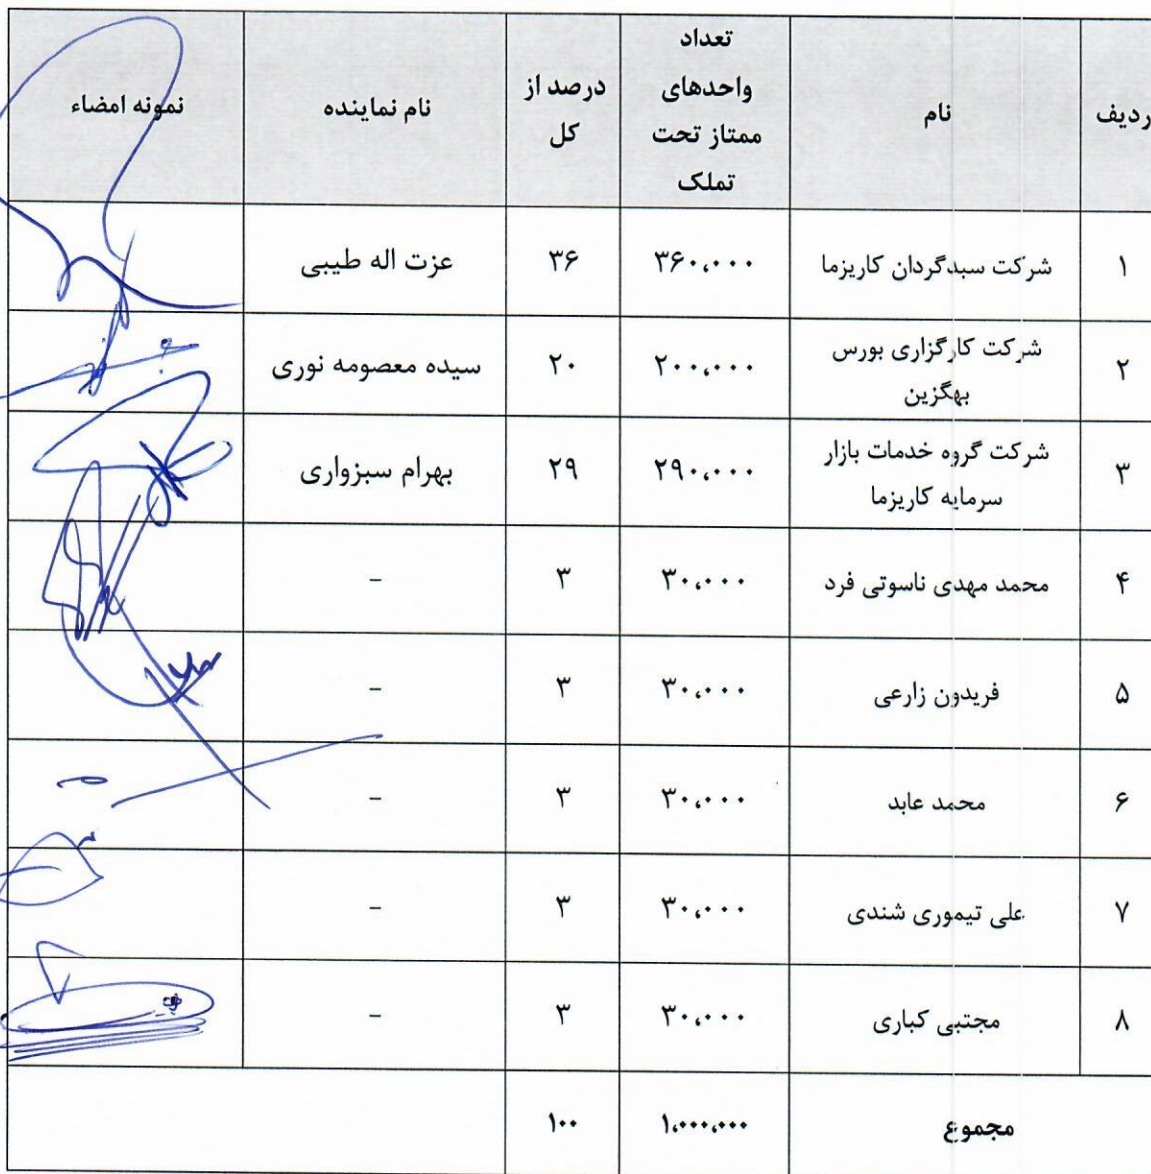 ردیف
نام
تعداد
واحدهای
ممتاز تحت
تملک
درصد از
کل
نام نماینده
نمونه امضاء
۱
شرکت سبدگردان کاریزما
۳۶۰،۰۰۰
۳۶
عزت اله طیبی
۲
شرکت کارگزاری بورس
بهگزین
۲۰۰،۰۰۰
۲۰
سیده معصومه نوری
۳
شرکت گروه خدمات بازار
سرمایه کاریزما
۲۹۰،۰۰۰
۲۹
بهرام سبزواری
۴
محمد مهدی ناسوتی فرد
۳۰،۰۰۰
۳
-
۵
فریدون زارعی
۳۰،۰۰۰
۳
-
۶
محمد عابد
۳۰،۰۰۰
۳
-
۷
علی تیموری شندی
۳۰،۰۰۰
۳
-
۸
مجتبی کباری
۳۰،۰۰۰
۳
-
مجموع
۱،۰۰۰،۰۰۰
۱۰۰